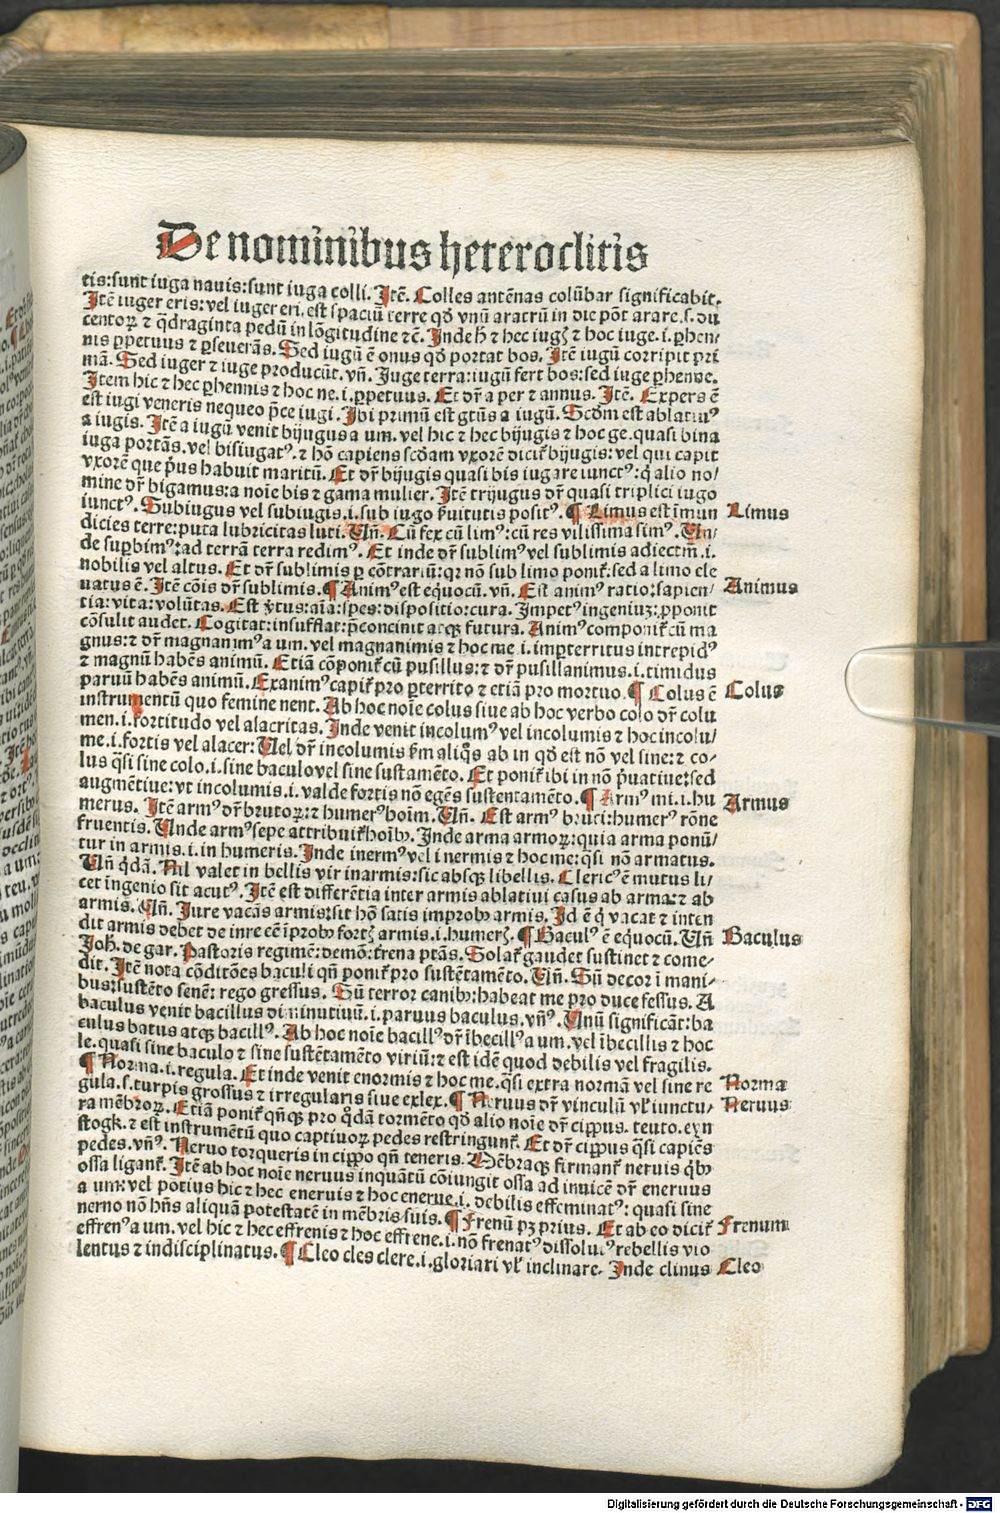 De nominibus heteroclitis
tis:sunt iuga nauis:sunt iuga colli. Itē. Colles antēnas colūbar significabit.
Itē iuger eris:vel iugeren̄. est spaciū terre qđ vnū aratrū in die pōt arare.s. du
centoꝝ ⁊ q̄draginta pedū in lōgitudine ⁊c̄. Inde h̄ ⁊ hec iugꝫ ⁊ hoc iuge.i. ꝑhen/
nis ꝑpetuus ⁊ ꝑseuerās. Sed iugū ē onus qđ portat bos. Itē iugū corripit pri
mā. Sed iuger ⁊ iuge producūt. vn̄. Iuge terra:iugū fert bos:sed iuge ꝑhenne.
Item hic ⁊ hec ꝑhennis ⁊ hoc ne.i. ꝑpetuus. Et dr̄ a per ⁊ annus. Itē. Expers ē
est iugi veneris nequeo p̄ce iugi. Ibi primū est gtūs a iugū. Scđm est ablatiuꝰ
a iugis. Itē a iugū venit bijugus a um. vel hic ⁊ hec bijugis ⁊ hoc ge. quasi bina
iuga portās. vel bisiugatꝰ. ⁊ hō capiens scđam vxorē dicit̄ bijugis: vel qui capit
vxorē que p̄us habuit maritū. Et dr̄ bijugis quasi bis iugare iunctꝰ: q̄ alio no/
mine dr̄ bigamus:a noīe bis ⁊ gama mulier. Itē trijugus dr̄ quasi triplici iugo
iunctꝰ. Subiugus vel subiugis.i. sub iugo ẜuitutis positꝰ. ¶ Limus est īmun
Limus
dicies terre:puta lubricitas luti. Vn̄. Cū fex cū limꝰ: cū res vilissima simꝰ. Vn/
de suꝑbimꝰ:ad terrā terra redimꝰ. Et inde dr̄ sublimꝰ vel sublimis adiectm̄.i.
nobilis vel altus. Et dr̄ sublimis ꝑ cōtrariū: qꝛ nō sub limo ponit̄: sed a limo ele
uatus ē. Itē cōis dr̄ sublimis. ¶ Animꝰ est equocū. vn̄. Est animꝰ ratio:sapien/
Animus
tia:vita:volūtas. Est v̄tus:aīa:spes:dispositio:cura. Impetꝰ ingeniuꝫ:ꝓponit
cōsulit audet. Cogitat:insufflat: p̄concinit atqꝫ futura. Animꝰ componit̄ cū ma
gnus: ⁊ dr̄ magnanimꝰ a um. vel magnanimis ⁊ hoc me.i. imꝑterritus intrepidꝰ
⁊ magnū habēs animū. Etiā cōponit̄ cū pusillus: ⁊ dr̄ pusillanimus.i. timidus
paruū habēs animū. Exanimꝰ capit̄ pro ꝑterrito ⁊ etiā pro mortuo. ¶ Colus ē
Colus
instrumentū quo femine nent. Ab hoc noīe colus siue ab hoc verbo colo dr̄ colu
men.i. fortitudo vel alacritas. Inde venit incolumꝰ vel incolumis ⁊ hoc incolu/
me.i. fortis vel alacer: Vel dr̄ incolumis ẜm aliq̄s ab in qđ est nō vel sine: ⁊ co/
lus q̄si sine colo.i. sine baculo vel sine sustamēto. Et ponit̄ ibi in nō p̄uatiue:sed
augmētiue: vt incolumis.i. valde fortis nō egēs sustentamēto. ¶ Armꝰ mi.i. hu
Armus
merus. Itē armꝰ dr̄ brutoꝝ: ⁊ humerꝰ hoim̄. Vn̄. Est armꝰ bruti: humerꝰ rōne
fruentis. Vnde armꝰ sepe attribuit̄ hoībꝫ. Inde arma armoꝝ: quia arma ponū/
tur in armis.i. in humeris. Inde inermꝰ vel inermis ⁊ hoc me: q̄si nō armatus.
Vn̄ q̄dā. Nil valet in bellis vir inarmis: sic absqꝫ libellis. Clericꝰ ē mutus li/
cet ingenio sit acutꝰ. Itē est differētia inter armis ablatiui casus ab arma: ⁊ ab
armis. Vn̄. Iure vacās armis:sit hō satis improbꝰ armis. Id ē q̄ vacat ⁊ inten
dit armis debet de iure eē īprobꝰ fortꝫ armis.i. humerꝫ. ¶ Baculꝰ ē equocū. Vn̄
Baculus
Joh. de gar. Pastoris regimē: demō: frena ptās. Solat̄ gaudet sustinet ⁊ come/
dit. Itē nota cōditōes baculi qn̄ ponit̄ pro sustētamēto. Vn̄. Sū decor ī mani/
bus:sustēto senē: rego gressus. Sū terror canibꝫ:habeat me pro duce fessus. A
baculus venit bacillus diminutiuū.i. paruus baculus. vn̄ꝰ. Vnū significāt: ba
culus batus atqꝫ bacillꝰ. Ab hoc noīe bacillꝰ dr̄ ībecillꝰ a um. vel ībecillis ⁊ hoc
le. quasi sine baculo ⁊ sine sustētamēto viriū: ⁊ est idē quod debilis vel fragilis.
¶ Norma.i. regula. Et inde venit enormis ⁊ hoc me. q̄si extra normā vel sine re
Norma
gula.s. turpis grossus ⁊ irregularis siue exlex. ¶ Neruus dr̄ vinculū vl̄ iunctu/
Neruus
ra mēbroꝝ. Etiā ponit̄ qn̄qꝫ pro q̄dā tormēto qđ alio noīe dr̄ cippus. teuto. eyn
stogk. ⁊ est instrumētū quo captiuoꝝ pedes restringunt̄. Et dr̄ cippus q̄si capiēs
pedes. vn̄ꝰ. Neruo torqueris in cippo qn̄ teneris. Mēbraqꝫ firmant̄ neruis q̄bꝫ
ossa ligant̄. Itē ab hoc noīe neruus inquātū cōiungit ossa ad inuicē dr̄ eneruus
a um: vel potius hic ⁊ hec eneruis ⁊ hoc enerue.i. debilis effeminatꝰ: quasi sine
neruo nō hn̄s aliquā potestatē in mēbris suis. ¶ Frenū pꝫ prius. Et ab eo dicit̄
Frenum
effrenꝰ a um. vel hic ⁊ hec effrenis ⁊ hoc effrene.i. nō frenatꝰ dissolutꝰ rebellis vio
lentus ⁊ indisciplinatus. ¶ Cleo cles clere.i. gloriari vl̄ inclinare. Inde clinus
Cleo
Digitalisierung gefördert durch die Deutsche Forschungsgemeinschaft - DFG